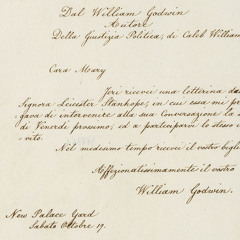 Dal William Godwin
Autore
Della Giustizia Politica, di Caleb William
Cara Mary
Jeri ricevei una letterina da
Signora Leicester Stanhope, in cui essa mi pre
gava di intervenire alla sua Conversazione la
di Venerdi prossimo, ed a parteciparvi lo stesso
vito.
Nel medesimo tempo ricevei il vostro bigli
Affezionatissimamente il vostro
William Godwin.
New Palace Yard
Sabato Ottobre 19.